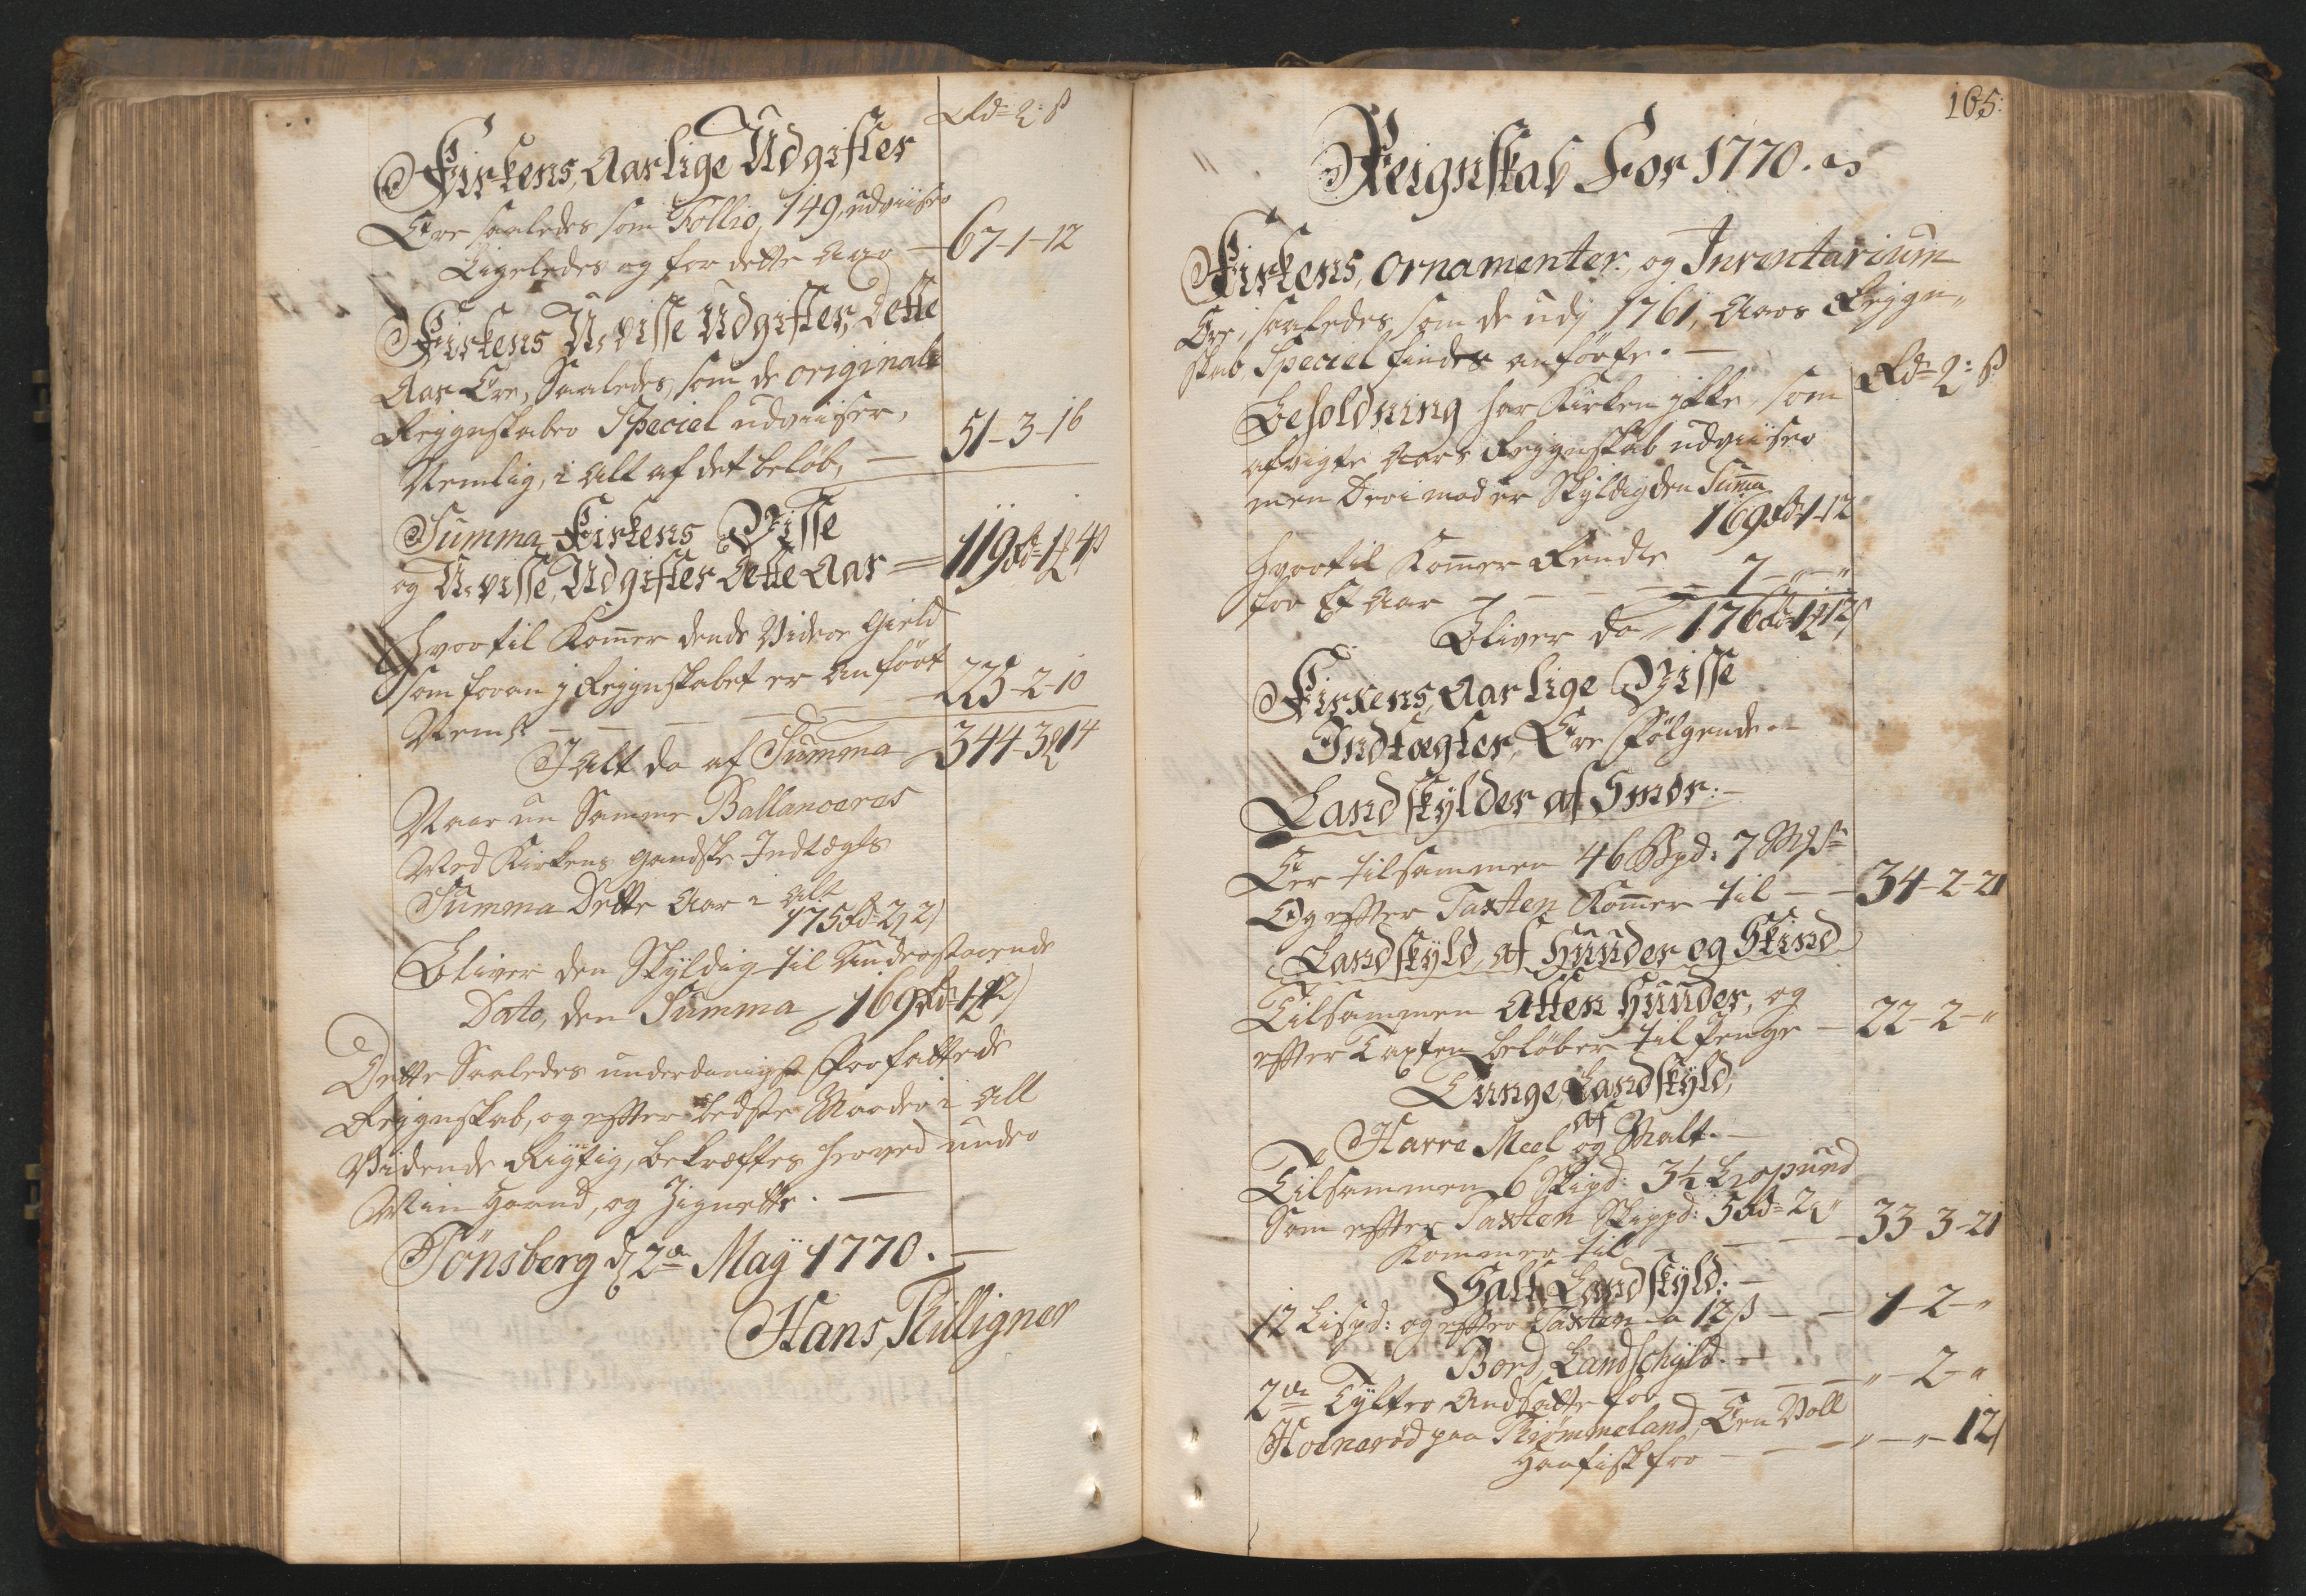 Rd=2:ß
Kirkens, Aarlige Udgifter
Ere saaledes som Follio, 149, udviiser
Ligeledes og for dette Aar — 67-1-12
Kirkens Uvisse Udgifter, dette
Aar Ere, Saaledes, som de originale
Reignskaber Speciel udviiser,
Nemlig, i Alt af det beløb, — 51-3-16
Summa Kirkens Visse
og Uvisse, Udgifter dette Aar = 119Rd-1-4ß
Hvortil Komer dends Videre Gield
som foran j Reignskabet er Anført
Neml: — — — — — 225-2-10
J Alt da af Summa 344-3-14
Naar nu Samme Ballanceres
Med Kirkens gandske Indtægts
Summa Dette Aar i Alt
175Rd-2-2ß
Bliver den Skÿldig til Understaaende
Dato, den Summa 169Rd-1-12ß
Dette Saaledes underdanigst Forfattede
Reignskab, og efter bedste Maader i All
Vidende Rigtig, bekræftes herved under
Min Haand, og Zignette. —
Tönsberg d 2de Maÿ 1770. —
Hans, Killigner
165:
Reignskab For 1770.
Kirkens, Ornamenter, og Inventarium
Ere, saaledes som de udj 1761, Aars Reign-
skab Speciel findes anførte. —
Rd=2:ß
Besoldning har Kirken ikke, som
afvigte Aars Reignskab udviiser
men Derimod er Skÿldig den Suma
169Rd-1-12
Hvortil Komer Rendte
for Et Aar — — — 7-"-"
Bliver da 176Rd-1-12ß
Kirkens, Aarlige Visse
Indtægter, Ere Følgende
Landskÿlder af Smør: —
Er tilsammen 46 Bpd: 7 Mrk
Og efter Taxten Komer til — — 34-2-21
Landskÿld, af Huuder og Skind
Tilsammen Atten Huuder, og
efter Taxten beløber til Penge — 22-2-"
Tunge, Landskÿld,
af
Harre Meel og Malt. —
Tilsammen 6 Skipd: 3½ Lispund
Som efter Taxten Skippd: 5Rd=2
Kommer til — — — — 33-3-21
Salt Landskÿld: —
12 Lispd: og efter Taxten a 12ß — — 1-2-"
Bord, Landschÿld: —
2de Tÿlter Andsatte for — — — "-2-"
Holnerød paa Tiømmeland, Een Voll
Haafisk for — — — "-"-12